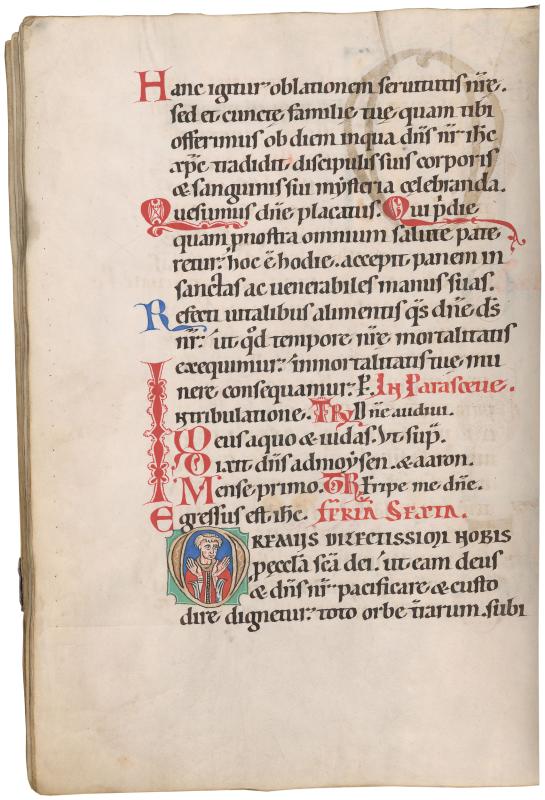 Hanc igitur oblationem seruitutis nr̄e.
sed et cuncte familie tue quam tibi
offerimus ob diem in qua dn̄s nr̄ ihc̄
xpc̄ tradidit discipulis suis corporis
& sanguinis sui mysteria celebranda.
Quesumus dn̄e placatus. Qui p̄die
quam p nostra omnium salute pate
retur. hoc ē hodie. accepit panem in
sanctas ac uenerabiles manus suas.
Refecti uitalibus alimentis qs̄ dn̄e ds̄
nr̄. ut qd̄ tempore nr̄e mortalitatis
exequimur. inmortalitatis tue mu
nere consequamur. P. In Parasceue.
In tribulatione. TR Dn̄e audiui.
Deus a quo & iudas. Vt sup̄.
Dixit dn̄s ad moysen. & aaron.
Mense primo. TR Eripe me dn̄e.
Egressus est ihc̄. FERIA SEXTA.
OREMUS DILECTISSIMI NOBIS
p eccl̄a sc̄a dei. ut eam deus
& dn̄s nr̄ pacificare & custo
dire dignetur. toto orbe t̄rarum. subi